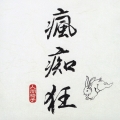 瘋痴狂